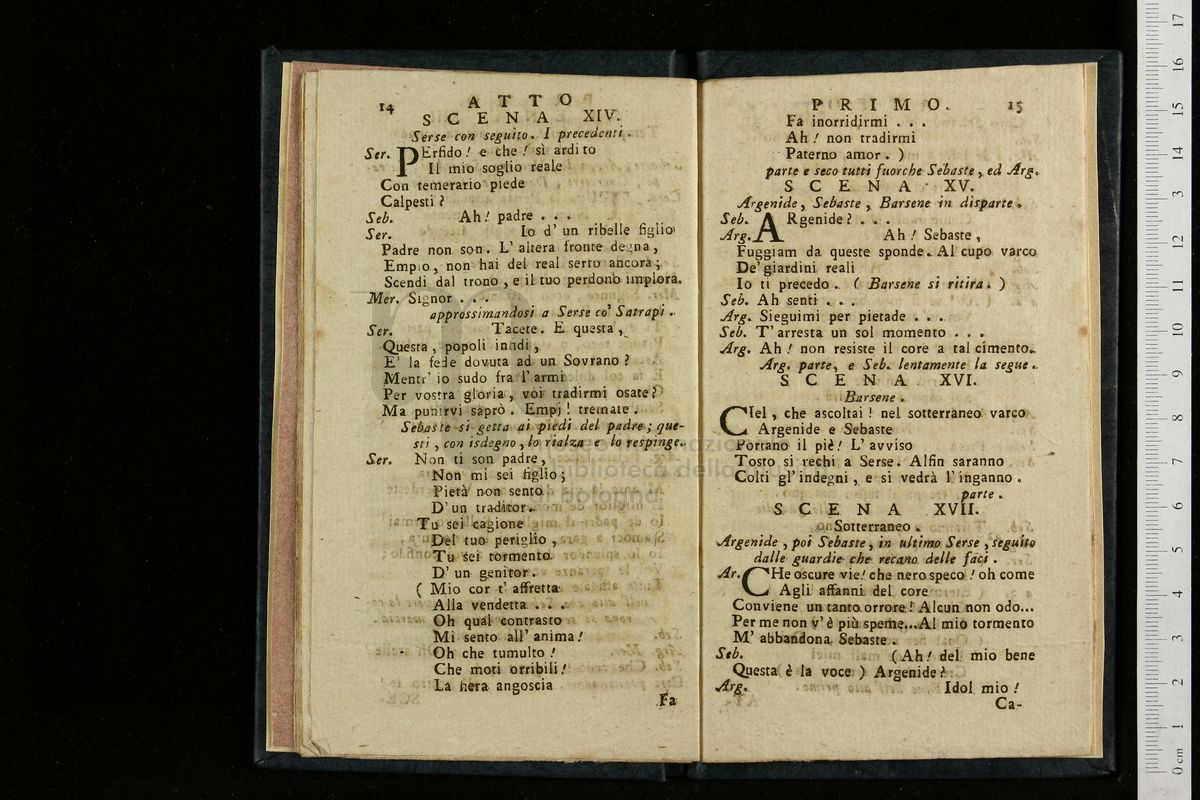 14 ATTO
SCENA XIV.
Serse con seguito. I precedenti.
Ser. PErfido! e che! sì ardito
Il mio soglio reale
Con temerario piede
Calpesti?
Seb. Ah! padre . . .
Ser. Io d' un ribelle figlio
Padre non son. L' altera fronte degna,
Empio, non hai del real serto ancora;
Scendi dal trono, e il tuo perdono implora.
Mer. Signor . . .
approssimandosi a Serse co' Satrapi.
Ser. Tacete. E questa,
Questa, popoli infidi,
E' la fede dovuta ad un Sovrano?
Mentr' io sudo fra l' armi
Per vostra gloria, voi tradirmi osate?
Ma punirvi saprò. Empj! tremate.
Sebaste si getta ai piedi del padre; que-
sti, con isdegno, lo rialza e lo respinge.
Ser. Non ti son padre,
Non mi sei figlio;
Pietà non sento
D' un traditor.
Tu sei cagione
Del tuo periglio,
Tu sei tormento
D' un genitor.
( Mio cor t' affretta
Alla vendetta . . .
Oh qual contrasto
Mi sento all' anima!
Oh che tumulto!
Che moti orribili!
La fiera angoscia
Fa
PRIMO. 15
Fa inorridirmi . . .
Ah! non tradirmi
Paterno amor. )
parte e seco tutti fuorche Sebaste, ed Arg.
SCENA XV.
Argenide, Sebaste, Barsene in disparte.
Seb. ARgenide? . . .
Arg. Ah! Sebaste,
Fuggiam da queste sponde. Al cupo varco
De' giardini reali
Io ti precedo. ( Barsene si ritira. )
Seb. Ah senti . . .
Arg. Sieguimi per pietade . . .
Seb. T' arresta un sol momento . . .
Arg. Ah! non resiste il core a tal cimento.
Arg. parte, e Seb. lentamente la segue.
SCENA XVI.
Barsene.
CIel, che ascoltai! nel sotterraneo varco
Argenide e Sebaste
Portano il piè! L' avviso
Tosto si rechi a Serse. Alfin saranno
Colti gl' indegni, e si vedrà l' inganno.
parte.
SCENA XVII.
Sotterraneo.
Argenide, poi Sebaste, in ultimo Serse, seguito
dalle guardie che recano delle faci.
Ar. CHe oscure vie! che nero speco! oh come
Agli affanni del core
Conviene un tanto orrore! Alcun non odo...
Per me non v' è più speme... Al mio tormento
M' abbandona Sebaste.
Seb. ( Ah! del mio bene
Questa è la voce ) Argenide?
Arg. Idol mio!
Ca-
0 cm 1 2 3 4 5 6 7 8 9 10 11 12 13 14 15 16 17